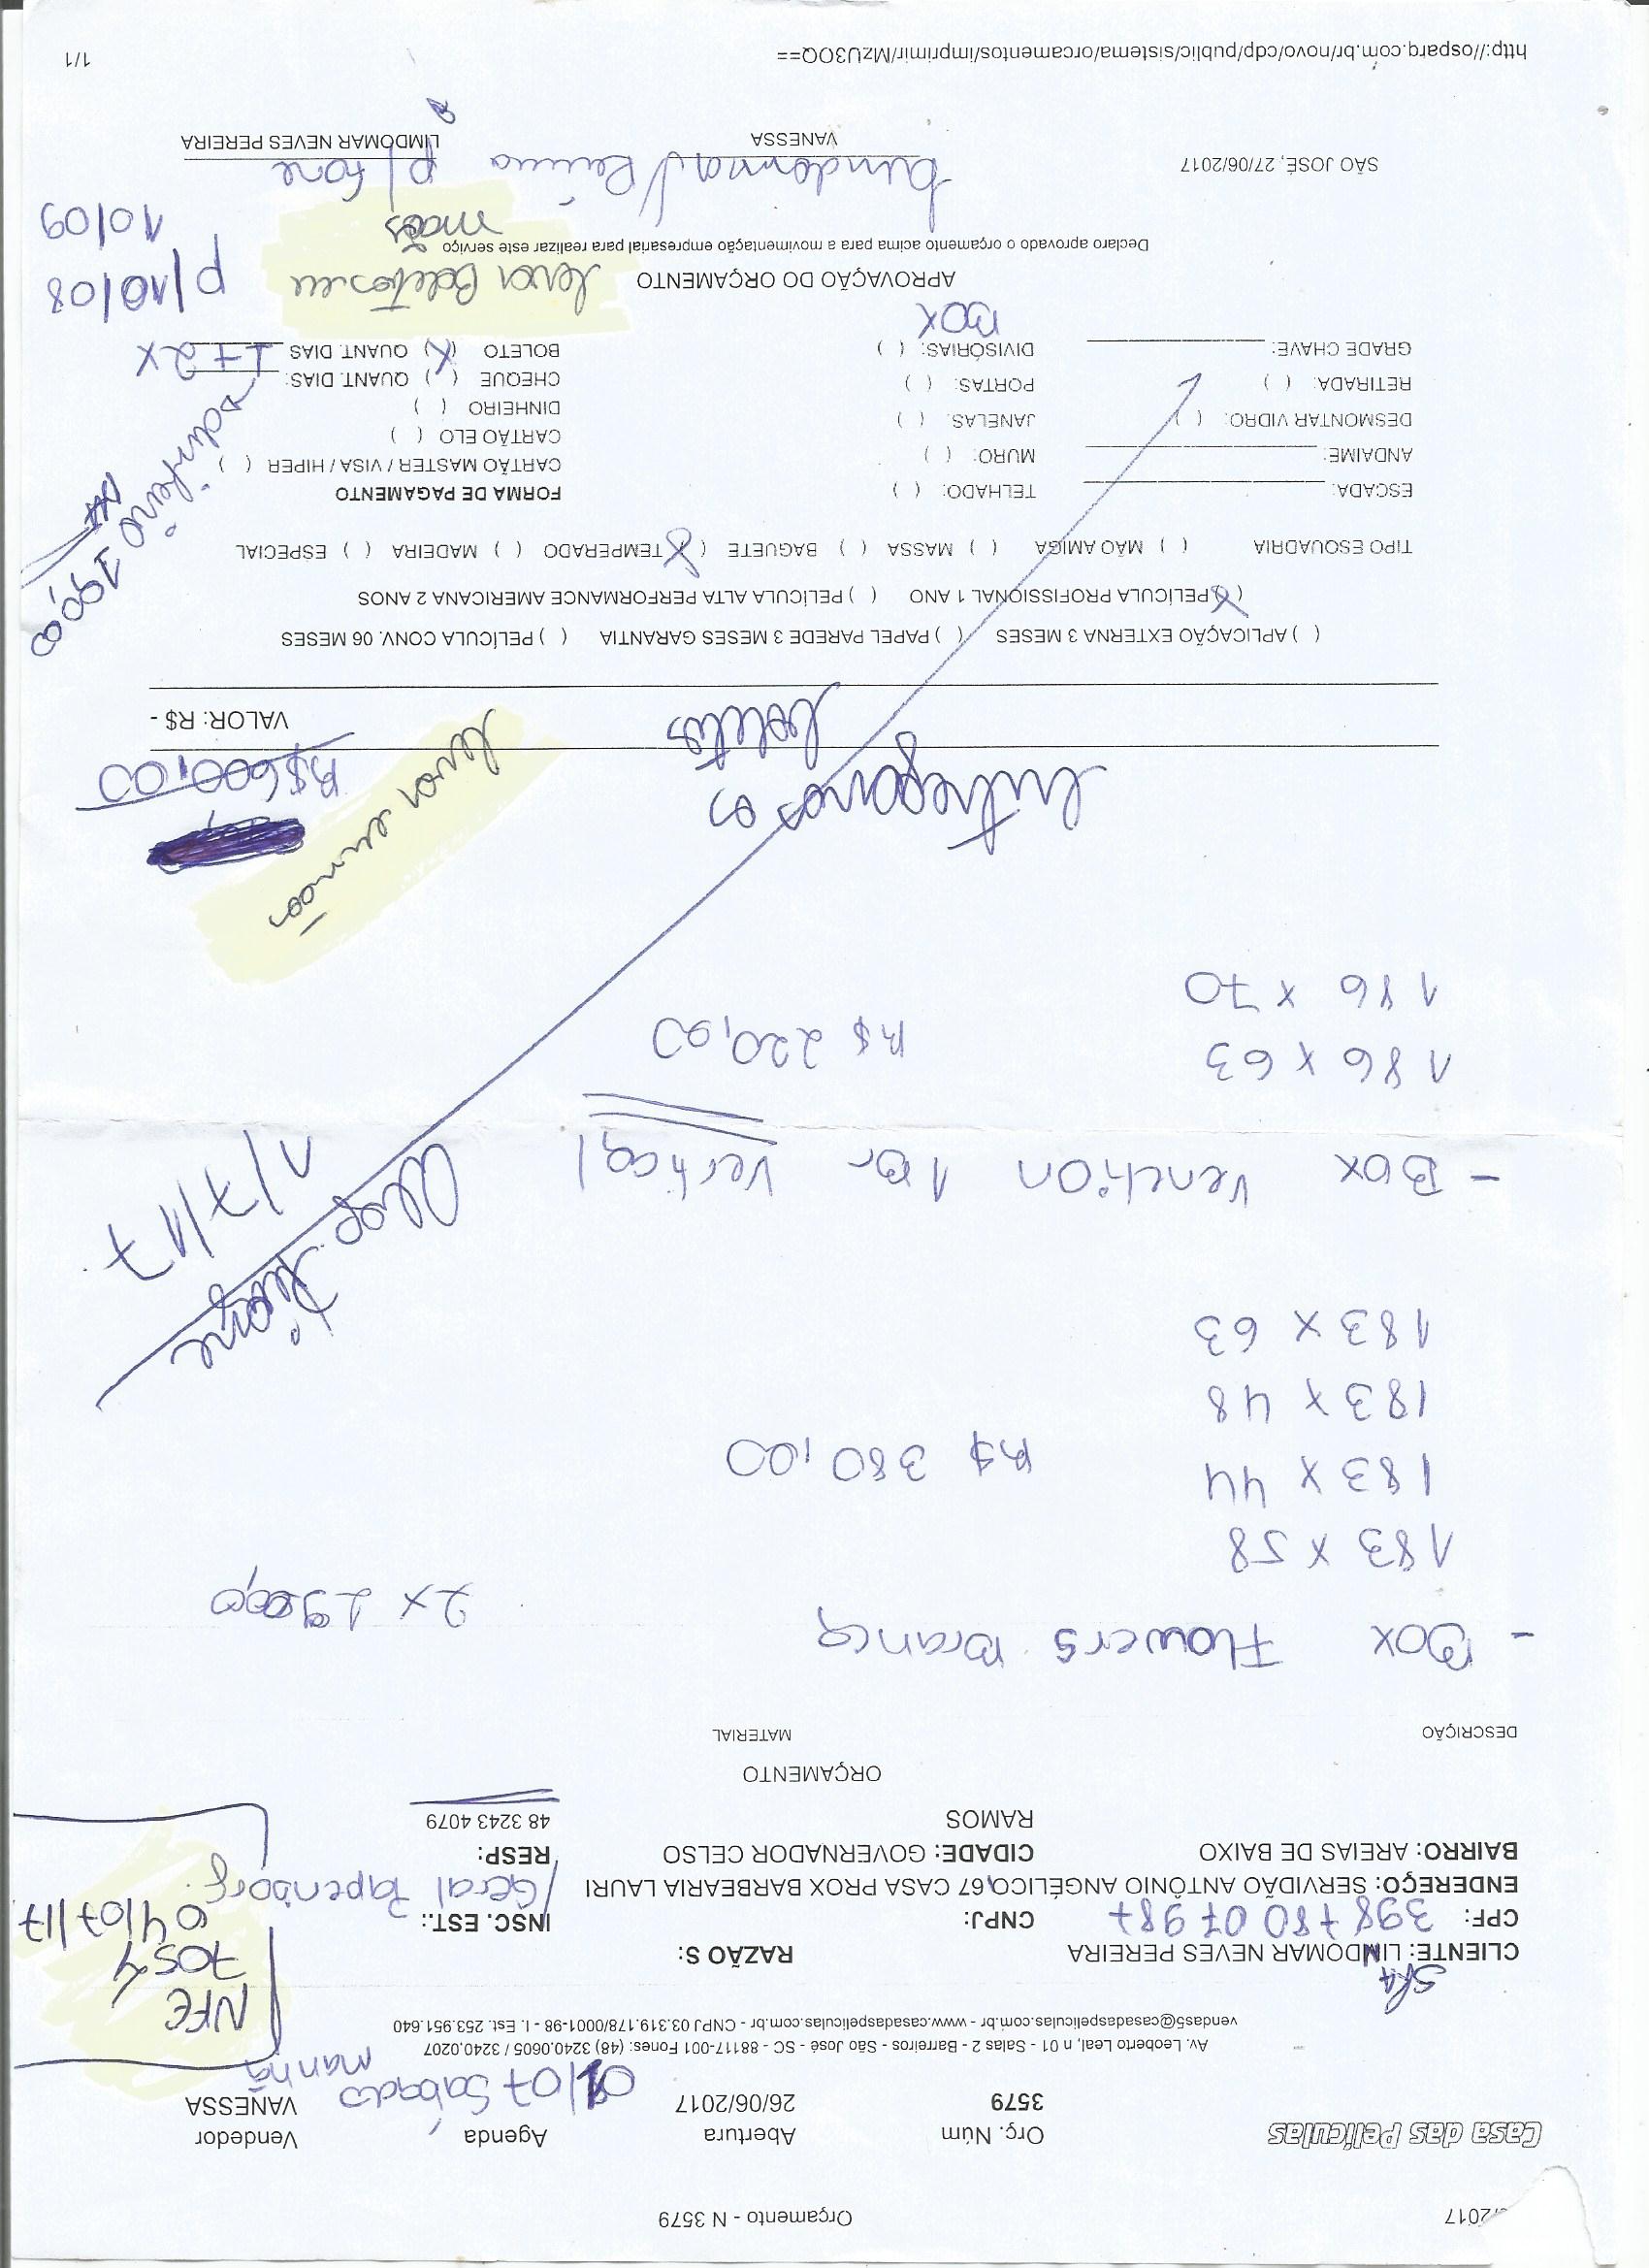 /2017
Orçamento - N 3579
Casa das Películas
Orç. Núm
3579
Abertura
26/06/2017
Agenda
01/07 Sabado
manhã
Vendedor
VANESSA
Av. Leoberto Leal, n 01 - Salas 2 - Barreiros - São José - SC - 88117-001 Fones: (48) 3240.0605 / 3240.0207
vendas5@casadaspeliculas.com.br - www.casadaspeliculas.com.br - CNPJ 03.319.178/0001-98 - I. Est. 253.951.640
NFE
7054
04/07/17
Sra
CLIENTE: LINDOMAR NEVES PEREIRA
RAZÃO S:
CPF: 398 780 07 987
CNPJ:
INSC. EST.:
ENDEREÇO: SERVIDÃO ANTÔNIO ANGÉLICO, 67 CASA PROX BARBEARIA LAURI
/Geral Papenborg
BAIRRO: AREIAS DE BAIXO
CIDADE: GOVERNADOR CELSO
RAMOS
RESP:
48 3243 4079
ORÇAMENTO
DESCRIÇÃO
MATERIAL
- Box Flowers Branca
2x 190,00
183 x 58
183 x 44
R$ 380,00
183 x 48
183 x 63
- Box Venction 1 Br Vertical
1/7/17
186 x 63
R$ 220,00
186 x 70
levar em mãos
entregar os
boletos
R$ 600,00
VALOR: R$ -
( ) APLICAÇÃO EXTERNA 3 MESES ( ) PAPEL PAREDE 3 MESES GARANTIA ( ) PELÍCULA CONV. 06 MESES
(X) PELÍCULA PROFISSIONAL 1 ANO ( ) PELÍCULA ALTA PERFORMANCE AMERICANA 2 ANOS
TIPO ESQUADRIA ( ) MÃO AMIGA ( ) MASSA ( ) BAGUETE (X) TEMPERADO ( ) MADEIRA ( ) ESPECIAL
ESCADA:
TELHADO: ( )
FORMA DE PAGAMENTO
ANDAIME:
MURO: ( )
CARTÃO MASTER / VISA / HIPER ( )
DESMONTAR VIDRO: ( )
JANELAS: ( )
CARTÃO ELO ( )
RETIRADA: ( )
PORTAS: ( )
DINHEIRO ( )
GRADE CHAVE:
DIVISÓRIAS: ( )
Box
CHEQUE ( ) QUANT. DIAS:
BOLETO (X) QUANT. DIAS 1+2x
dinheiro 190,00
APROVAÇÃO DO ORÇAMENTO
levar Boletos em
mãos
p/10/08
10/09
Declaro aprovado o orçamento acima para a movimentação empresarial para realizar este serviço
SÃO JOSÉ, 27/06/2017
p/ fone
VANESSA
LIMDOMAR NEVES PEREIRA
http://osparq.com.br/novo/cdp/public/sistema/orcamentos/imprimir/MzU3OQ==
1/1